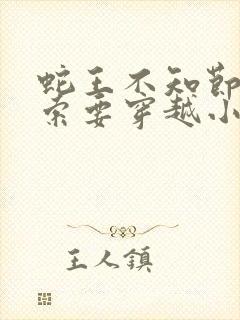 蛇王不知节
索要穿越小
王人镇